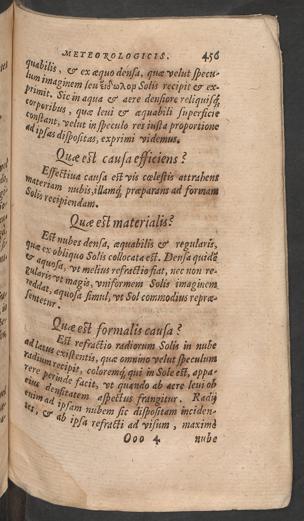 METEOROLOGICIS. 456
quabilis, & ex æquo densa, quæ velut specu-
lum imaginem seu εἴδωλον Solis recipit & ex-
primit. Sic in aqua & aere densiore reliquisq́
corporibus, quæ leui & æquabili superficie
constant, velut in speculo res iusta proportione
ad ipsas dispositas, exprimi videmus.
Quæ est causa efficiens?
Effectiua causa est vis cœlestis attrahens
materiam nubis, illamq́, præparans ad formam
Solis recipiendam.
Quæ est materialis?
Est nubes densa, æquabilis & regularis,
quæ ex obliquo Solis collocata est. Densa quidē
& aquosa, vt melius refractio fiat, nec non re-
gularis vt magis, vniformem Solis imaginem
reddat, aquosa simul, vt Sol commodius repræ-
sentetur.
Quæ est formalis causa?
Est refractio radiorum Solis in nube
ad latus existentis, quæ omnino velut speculum
radium recipit, coloremq́, qui in Sole est, appa-
rere perinde facit, vt quando ab aere leui ob
eius densitatem aspectus frangitur. Radij
enim ad ipsam nubem sic dispositam inciden-
tes, & ab ipsa refracti ad visum, maximè
Ooo 4 nube